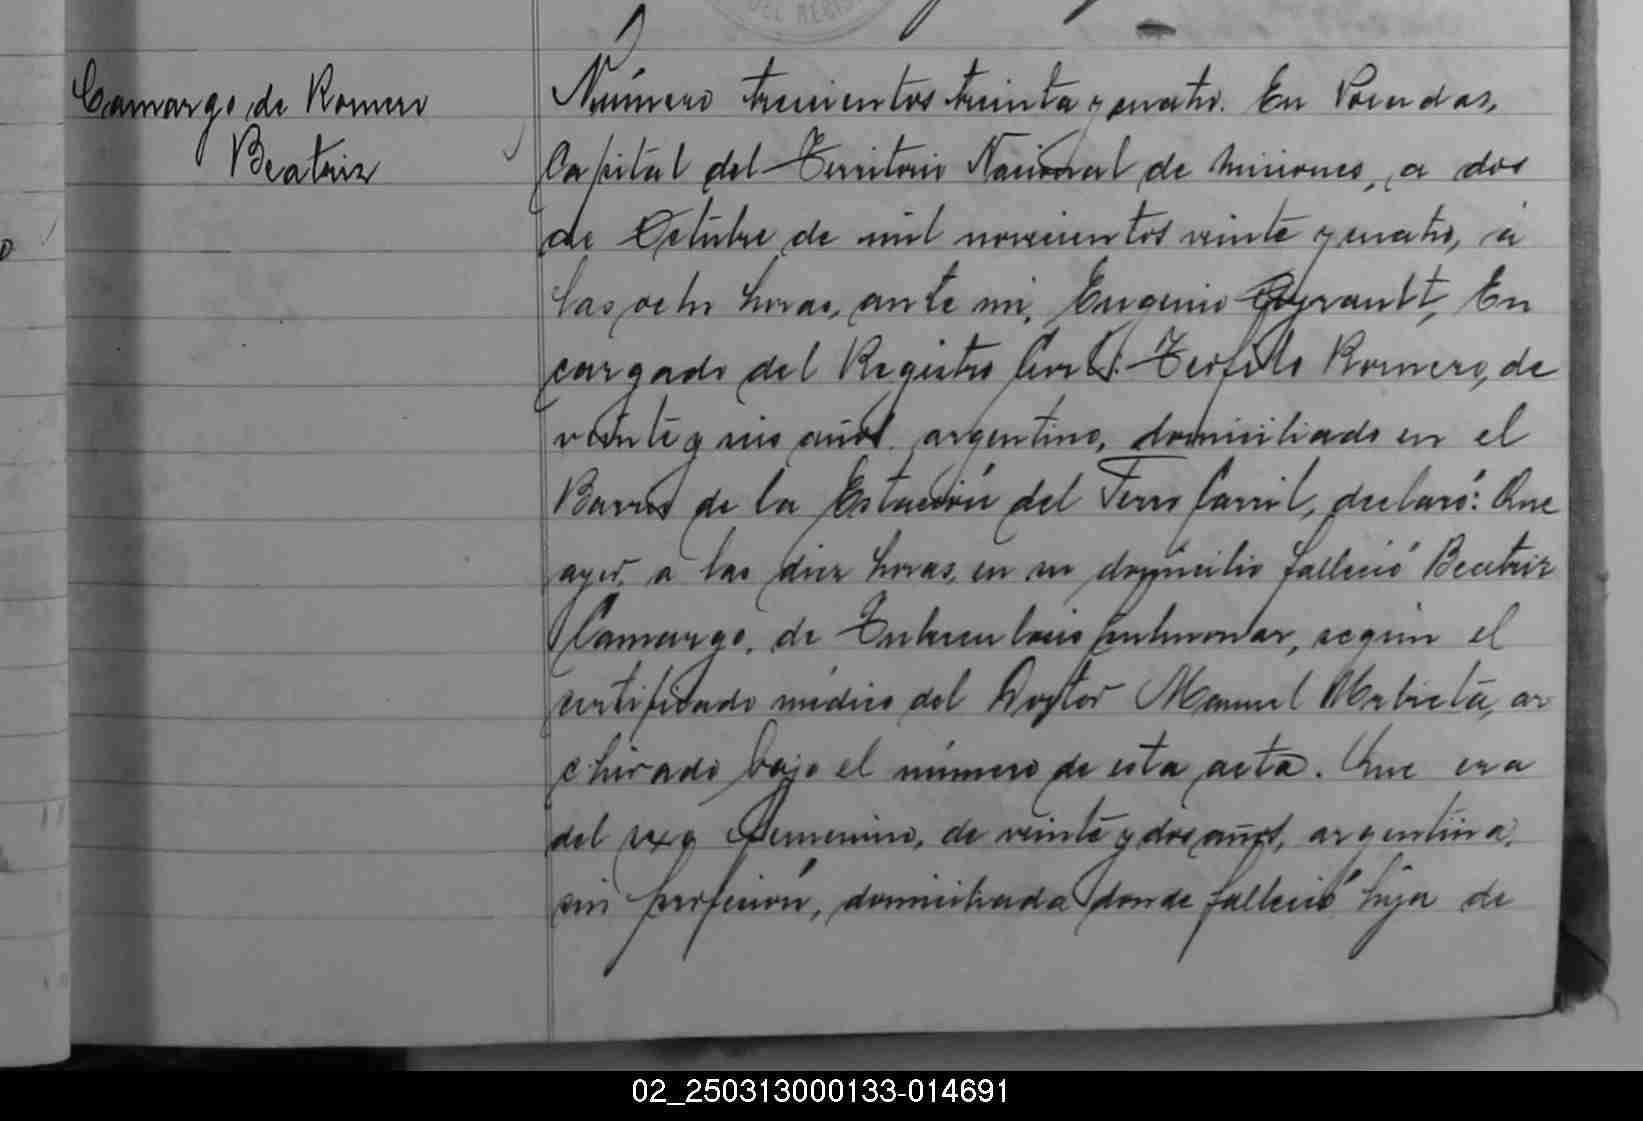 DEL REGIS
Camargo de Romero
Beatriz
Número trescientos treinta y cuatro. En Posadas,
Capital del Territorio Nacional de Misiones, a dos
de Octubre de mil novecientos veinte y cuatro, a
las ocho horas, ante mi, Eugenio En
cargado del Registro Civil: Teofilo Romero, de
veinte y seis años, argentino, domiciliado en el
Barrio de la Estación del Ferro Carril, declaró: Que
ayer, a las diez horas, en su domicilio falleció Beatriz
Camargo, de Tuberculosis pulmonar, según el
certificado médico del Doctor Manuel ar
chivado bajo el número de esta acta. Que era
del sexo femenino, de veinte y dos años, argentina,
sin profesión, domiciliada donde falleció hija de
02_250313000133-014691